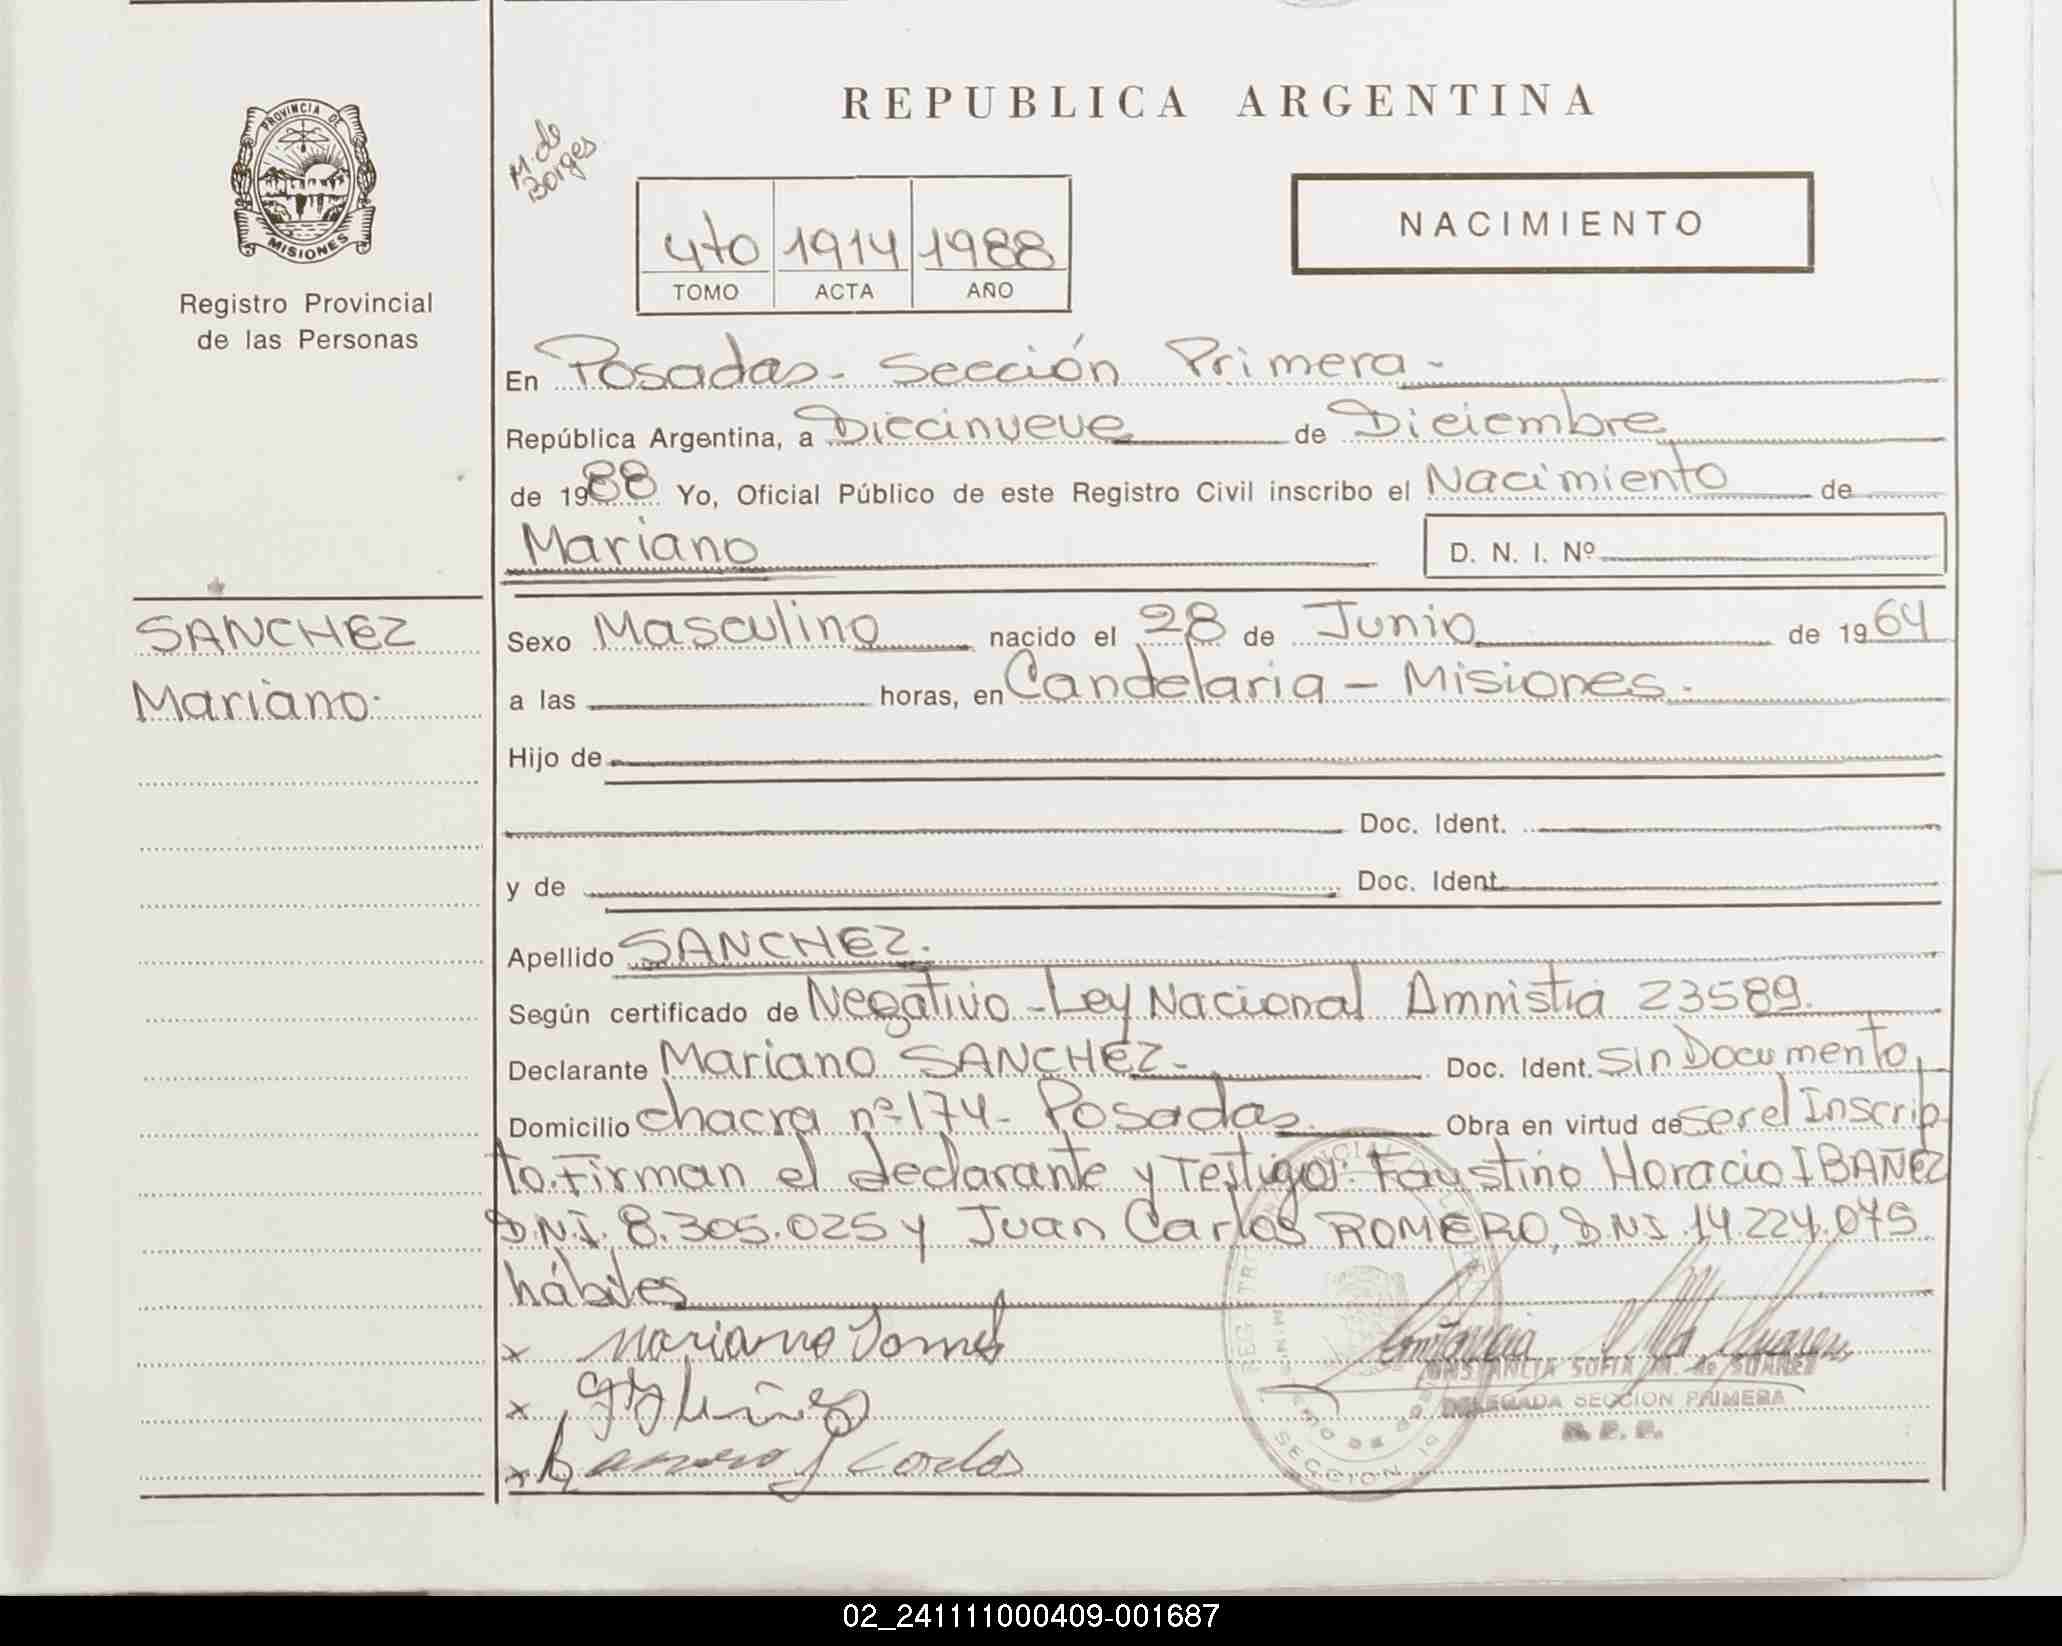 REPUBLICA ARGENTINA
PROVINCIA DE
MISIONES
Registro Provincial
de las Personas
M. de
Borges
4to 1914 1988
TOMO ACTA AÑO
NACIMIENTO
En Posadas - Sección Primera -
República Argentina, a Diecinueve de Diciembre
de 1988 Yo, Oficial Público de este Registro Civil inscribo el Nacimiento de
Mariano D. N. I. Nº
SANCHEZ
Mariano.
Sexo Masculino nacido el 28 de Junio de 1964
a las horas, en Candelaria - Misiones.
Hijo de
Doc. Ident.
y de Doc. Ident.
Apellido SANCHEZ.
Según certificado de Negativo - Ley Nacional Amnistia 23589.
Declarante Mariano SANCHEZ - Doc. Ident. Sin Documento,
Domicilio chacra nº 174 - Posadas. Obra en virtud de ser el Inscrip
to. Firman el declarante y Testigos: Faustino Horacio IBAÑEZ
D.N.I. 8.305.025 y Juan Carlos ROMERO, D.N.I. 14.224.075
hábiles
x Mariano
x
x Romero J Carlos
CONSTANCIA SOFIA M. de SUAREZ
DELEGADA SECCION PRIMERA
R. P. P.
SECCION
02_241111000409-001687